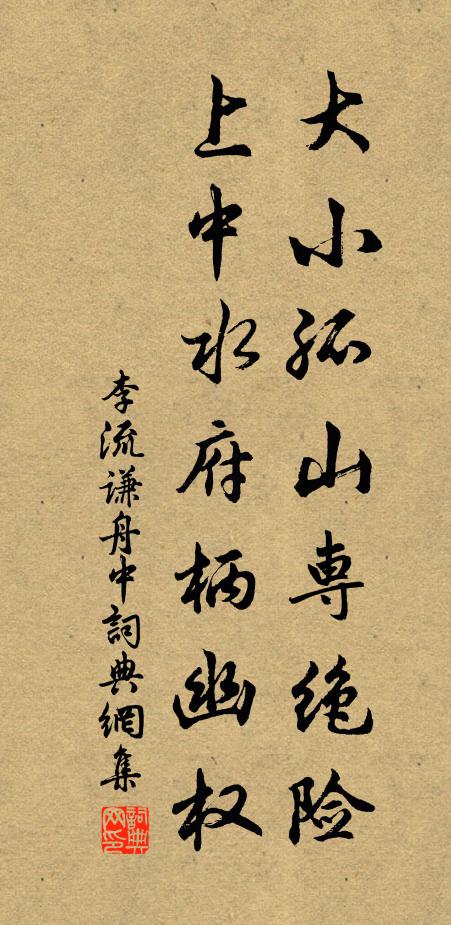 大小孤山専绝险
上中水府柄幽权
李流谦舟中詞典網集
詞典网印